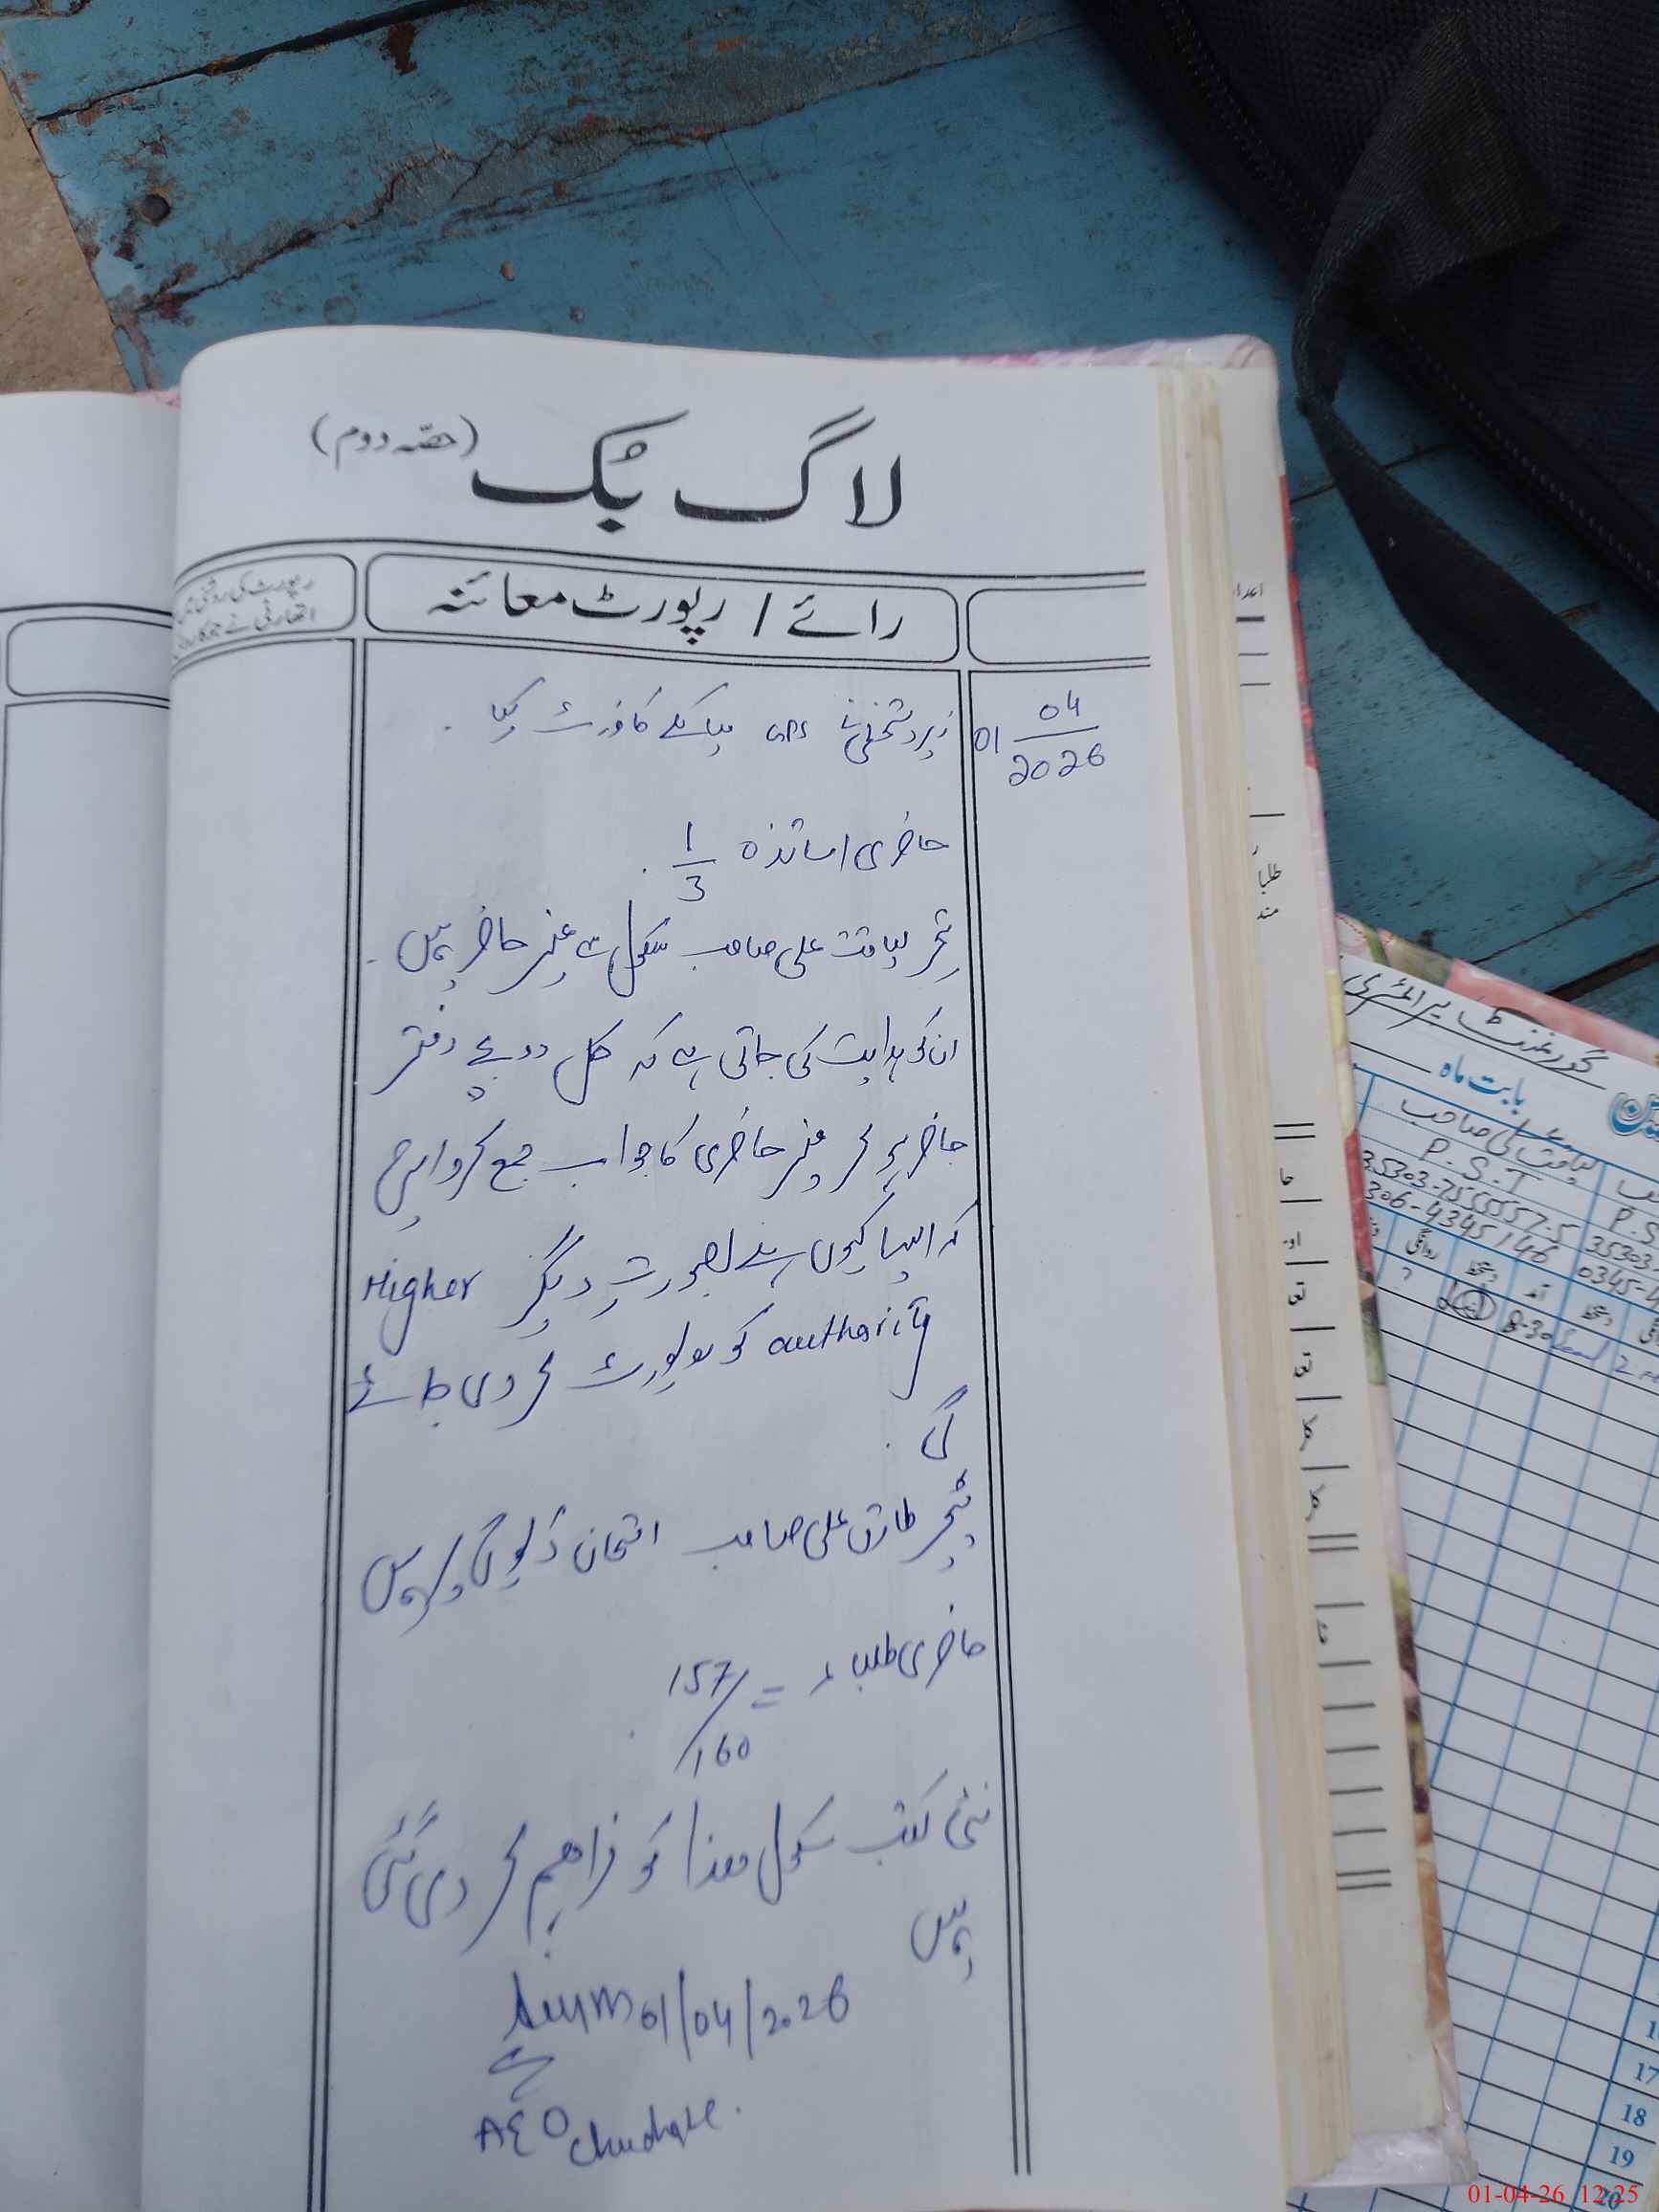 لاگ بُک (حصّہ دوم)
رائے / رپورٹ معائنہ
رپورٹ کی روشنی میں
اتھارٹی نے جو کارروائی
01 04/2026
زیر دستخطی نے GPS کا وزٹ کیا۔
حاضری اساتذہ 1/3
ٹیچر لیاقت علی صاحب سکول سے غیر حاضر ہیں۔
ان کو ہدایت کی جاتی ہے کہ کل دو بجے دفتر
حاضر ہو کر غیر حاضری کا جواب جمع کروائیں
کہ ایسا کیوں ہے بصورت دیگر Higher
authority کو رپورٹ کر دی جائے
گی۔
ٹیچر طارق علی صاحب امتحان ڈیوٹی پر ہیں
حاضری طلباء = 157/160
نئی کتب سکول ھذا کو فراھم کر دی گئی
ہیں
01/04/2026
AEO
گورنمنٹ پرائمری
بابت ماہ
لیاقت علی صاحب
P.S.T
35303-7555557-5
306-4345146
35303
0345-4
روانگی
دستخط
آمد
دستخط
8-30
طلبا
17
18
19
20
01-04-26 12:25